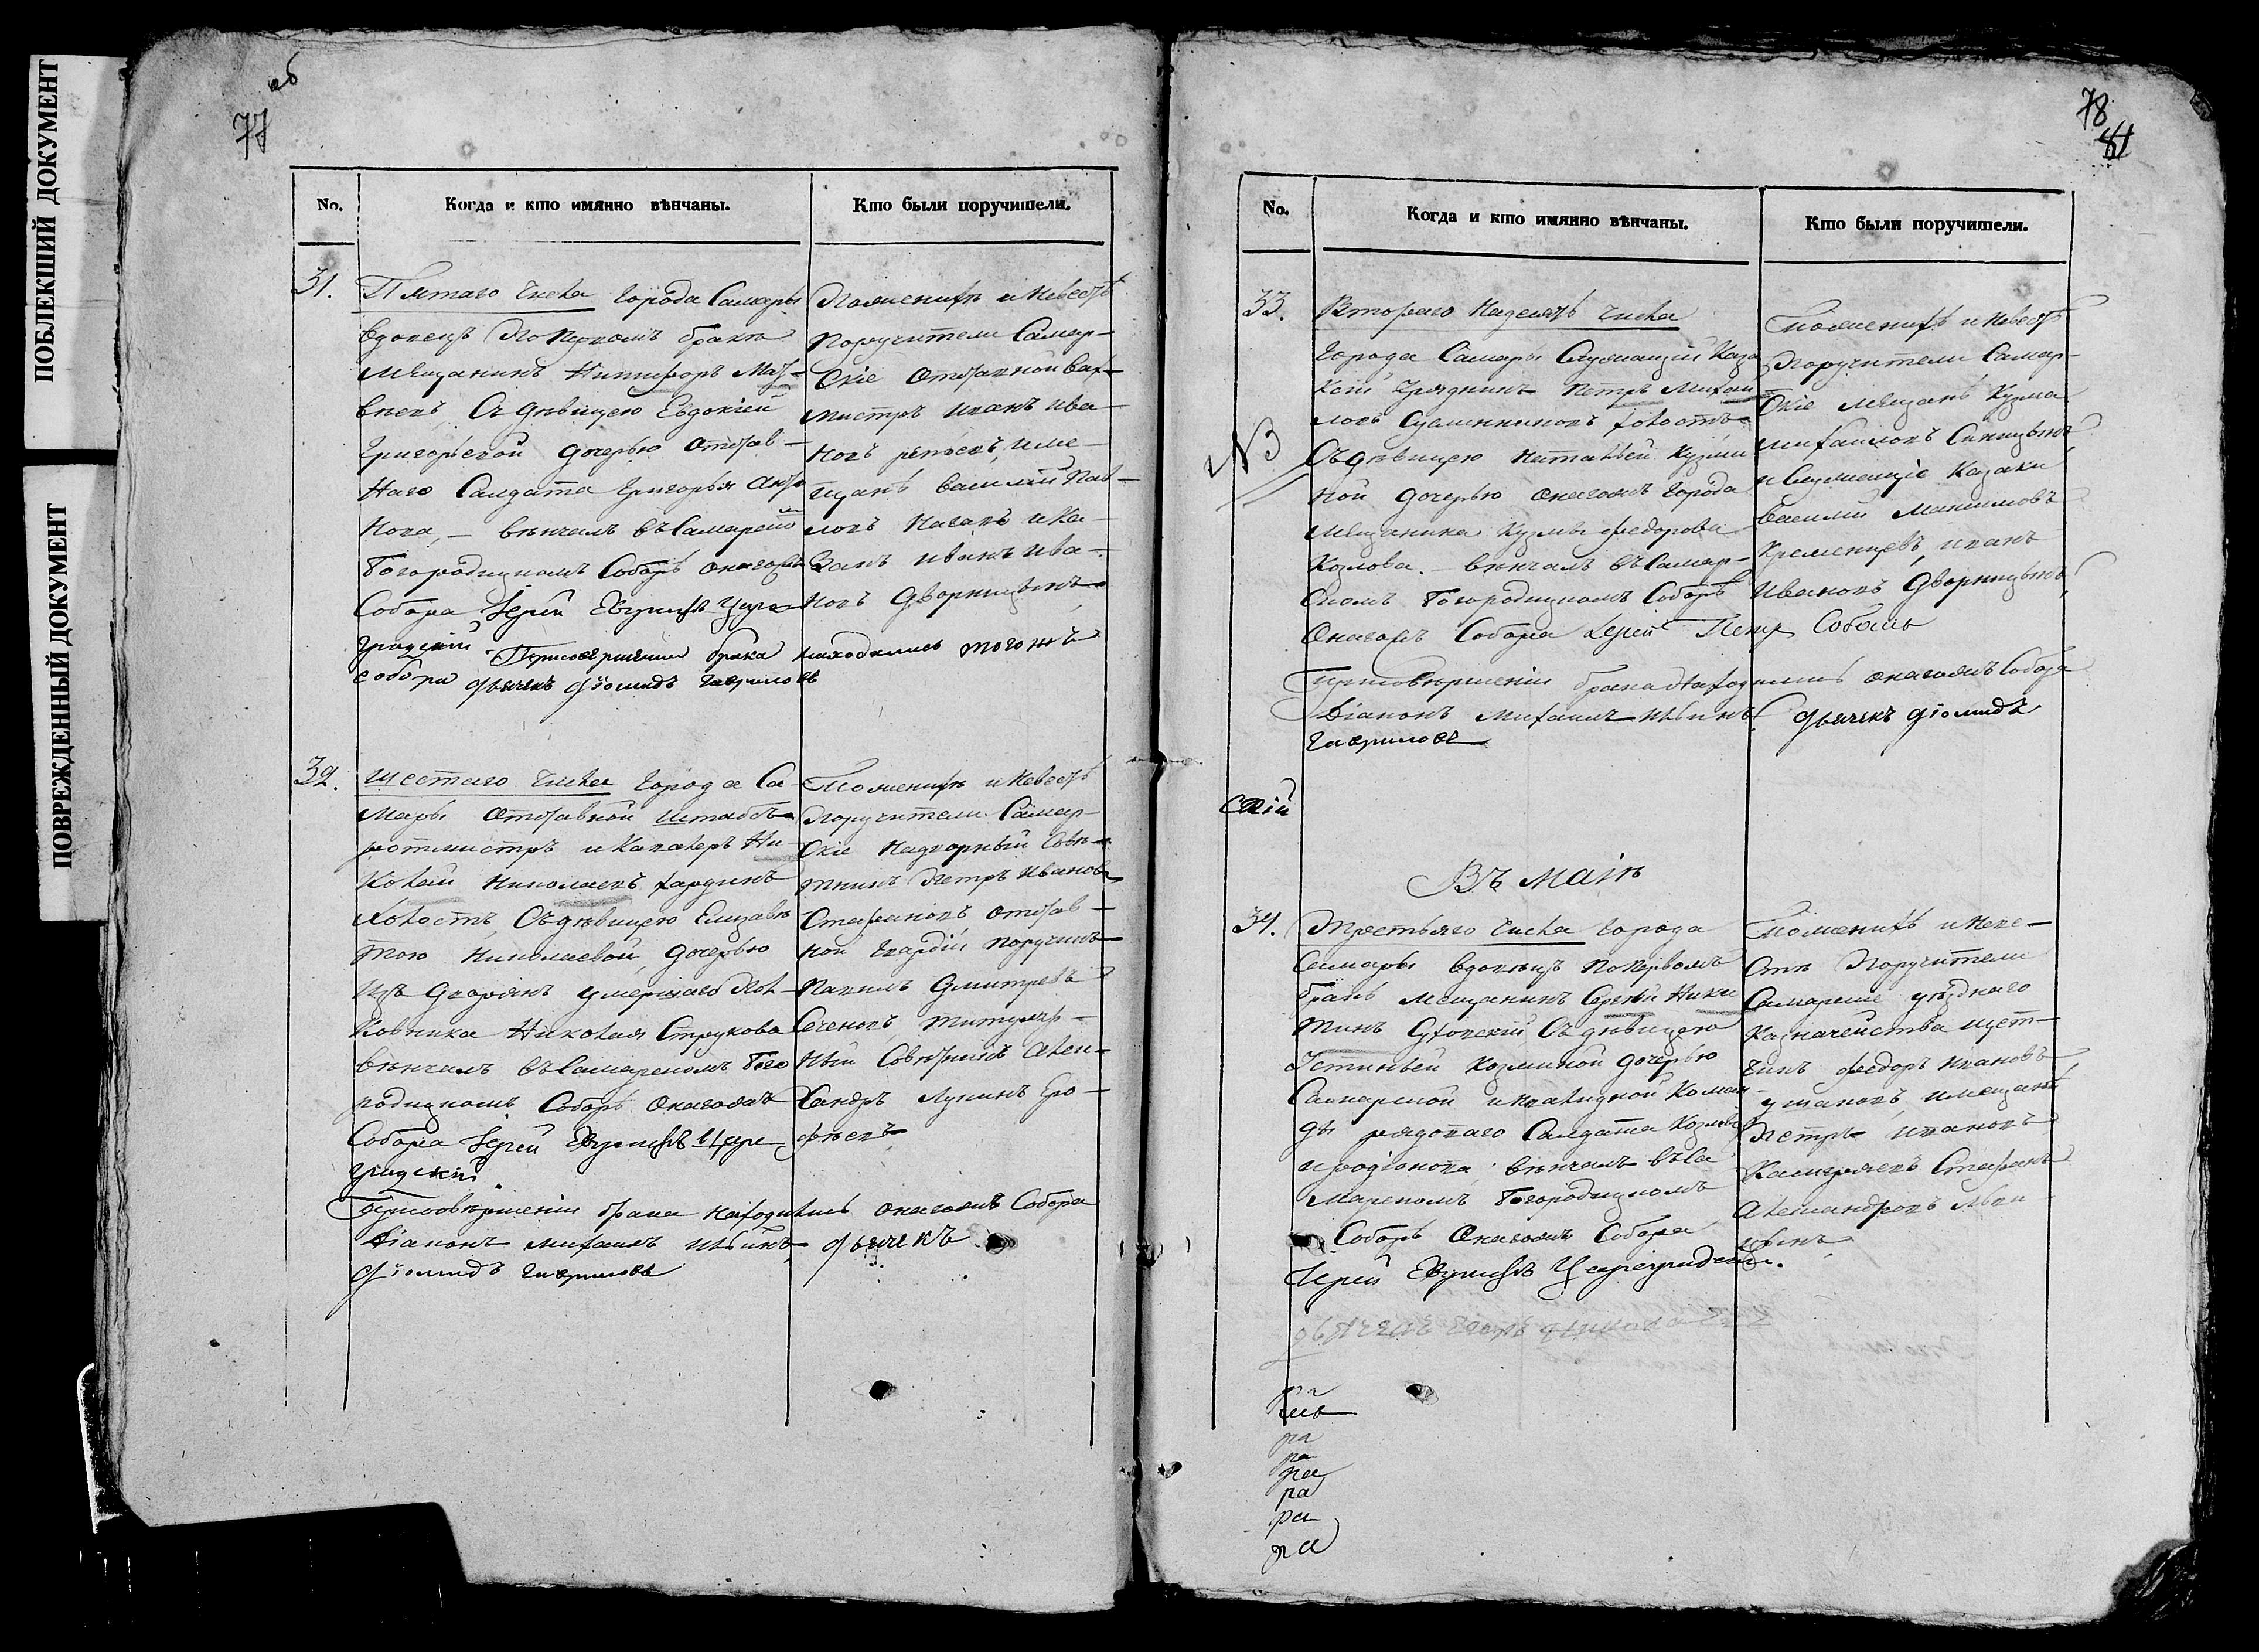 ПОБЛЕКШИЙ ДОКУМЕНТ
ПОВРЕЖДЕННЫЙ ДОКУМЕНТ
об
77
No.
Когда и кто имянно вѣнчаны.
Кто были поручители.
31.
Пятаго числа города Самары
вдовецъ По первомъ бракѣ
мѣщанинъ Никифоръ Мат-
вѣевъ, Съ дѣвицею Евдокіей
Григорьевой дочерью отстав-
наго Салдата Григорья
нова, – вѣнчалъ въ Самарском
Богородицкомъ Соборѣ онагожъ
Собора Іерей Евѳимій Царе
градскій. При совершеніи брака находились тогожъ
собора дьячекъ Діомидъ Гавриловъ
По женихѣ и невестѣ
Поручители Самар-
скіе отставной вах-
мистръ Иванъ Ива-
новъ имѣ-
щанъ Василій Пав-
ловъ и Ка-
закъ Иванъ Ива-
новъ Дворницынъ
32.
шестаго числа города Са-
мары отставной штабсъ-
ротмистръ и кавалеръ Ни-
колай Николаевъ Хардинъ
Холостъ, Съ дѣвицею Елизаве
тою Николаевой, дочерью
изъ дворянъ умершаго Пол-
ковника Николая Струкова
вѣнчалъ въ Самарскомъ Бого
родицкомъ Соборѣ онагожъ
Собора Іерей Евѳимій Царе
градскій.
При совершеніи брака находились онагожъ Собора
Діаконъ Михаилъ Ильинъ, дьячекъ
Діомидъ Гавриловъ
По женихѣ и невестѣ
Поручители Самар-
скіе надворный совѣ-
тникъ Петръ Ивановъ
отстав-
ной гвардіи поручикъ
Павилъ Дмитревъ
титуляр-
ный Совѣтникъ Алек-
сандръ Лукинъ Еро-
фѣевъ
78
81
No.
Когда и кто имянно вѣнчаны.
Кто были поручители.
33.
NB
Втораго надесять числа
города Самары Служащій Каза
чей Урядникъ Петръ Михаи
ловъ холостъ
Съ дѣвицею Натальей Кузми
ной дочерью онагожъ города
мѣщанина Кузмы Федорова
Козлова. – вѣнчалъ въ Самар-
скомъ Богородицкомъ Соборѣ
онагожъ Собора Іерей Петр
При совершеніи брака находились онагожъ Собора
Діаконъ Михаилъ Ильинъ дьячекъ Діомидъ
Гавриловъ
По женихѣ и невестѣ
Поручители Самар-
скіе мѣщанъ Кузма
Михайловъ Синицынъ
и Служащіе Казаки
Василій Максимовъ
Кременцевъ, Иванъ
Ивановъ Дворницынъ
скій
Въ Маіѣ
34.
Третьяго числа города
Самары вдовецъ по первомъ
бракѣ мѣщанинъ Сергѣй Ники
тинъ Съ дѣвицею
Устиньей Козминой дочерью
Самарской инвалидной Коман-
ды рядоваго Салдата Козмы
Иродіонова, вѣнчалъ въ Са
марскомъ Богородицкомъ
Соборѣ онагожъ Собора
Іерей Евѳимій Цареградскій.
По женихѣ и неве-
стѣ Поручители
Самарские уѣзднаго
Казначейства щет-
чикъ Федоръ Ивановъ
Ушаковъ, и мещанѣ
Петръ Ивановъ
Стефанъ
Александровъ
ра
ра
ра
ра
ра
ра